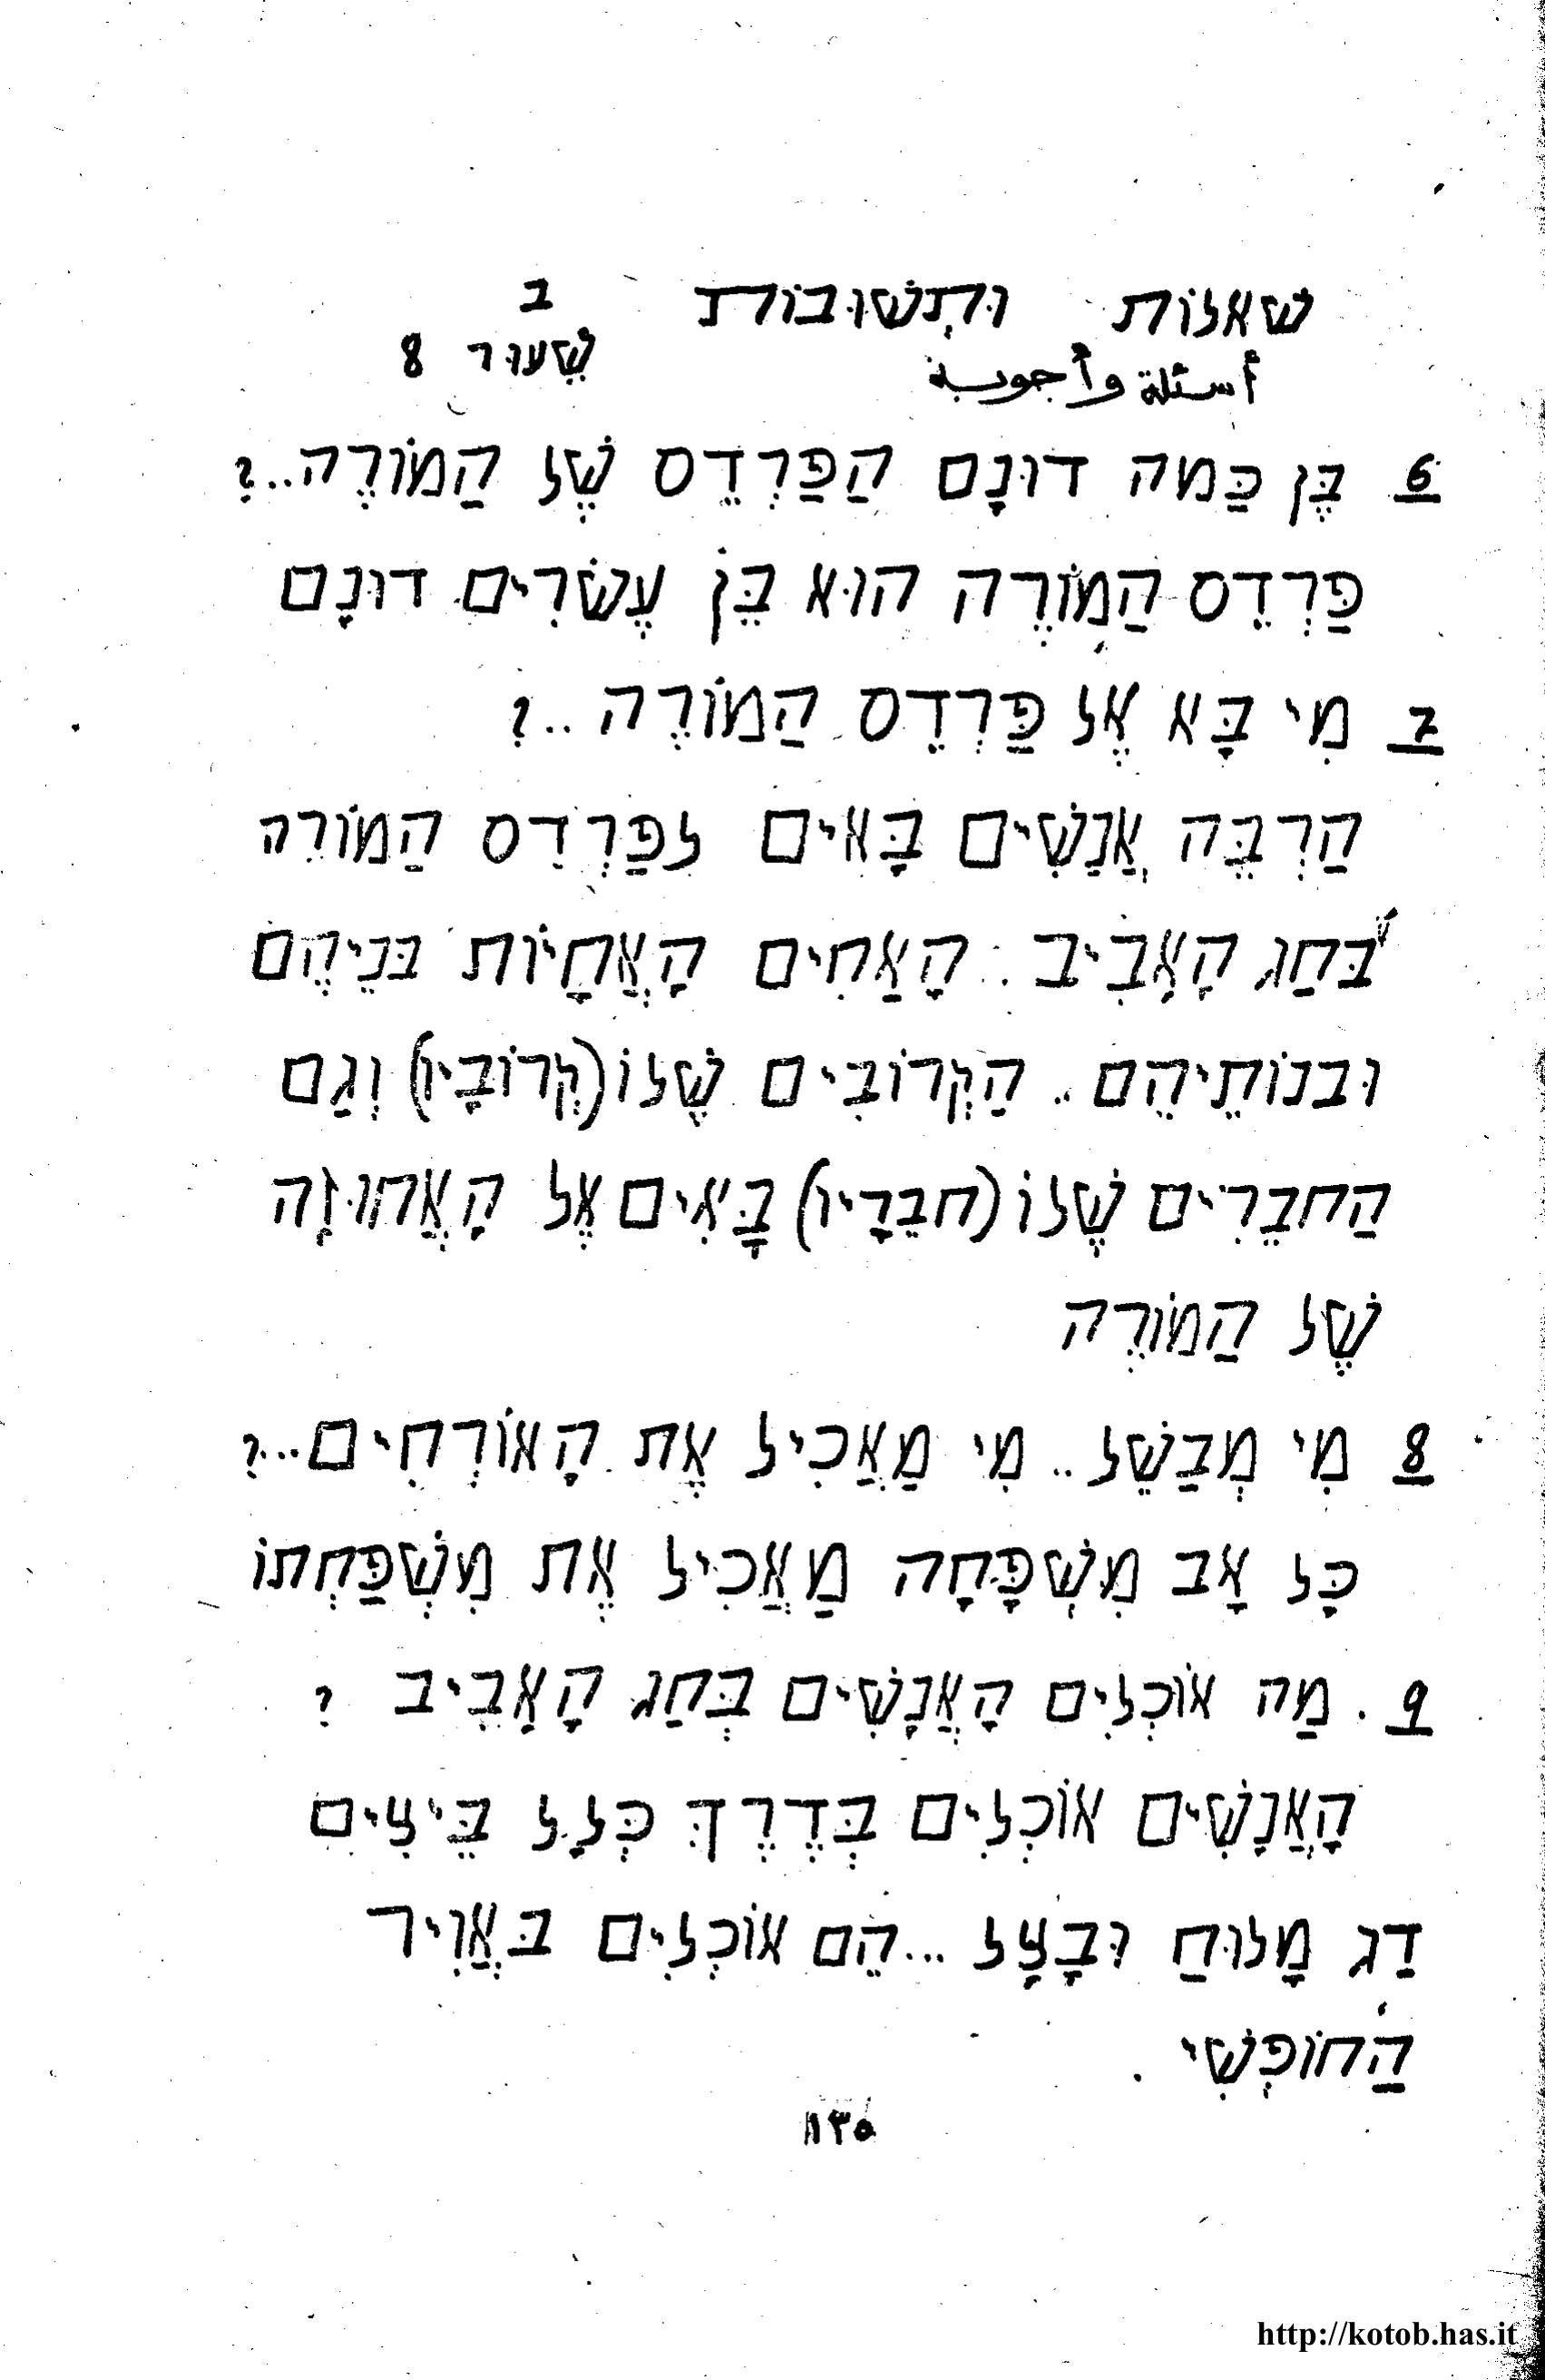 שאלות וּתְשׁוּבוֹת ב
أسئلة وأجوبة שֵׁעוּר 8
6 בֶּן כַּמה דוּנָם הַפַּרְדֵס שֶׁל הַמוֹרֶה..?
פַּרְדֵס הַמוֹרֶה הוּא בֵּן עֶשְׂרִים דוּנָם
7 מִי בָּא אֶל פַּרְדֵס הַמוֹרֶה..?
הַרְבֶּה אֲנַשִׁים בָּאִים לפַּרְדֵס הַמוֹרה
בּחַג הָאָבִיב.. הָאַחִים הָאֲחָיוֹת בּנֵיהֶם
וּבנוֹתֵיהֶם.. הַקְרוֹבִים שֶׁלוֹ (קְרוֹבָיו) וְגַם
הַחבֵרִים שֶׁלוֹ (חבֵרָיו) בָּאִים אֶל הָאֲחוּזָה
שֶׁל הַמוֹרֶה
8 מִי מְבַשֵׁל.. מִי מַאֲכִיל אֶת הָאוֹרְחִים...?
כָּל אָב מִשְׁפָּחָה מַאֲכִיל אֶת מִשְׁפַּחְתוֹ
9. מַה אוֹכְלִים הָאֲנָשִׁים בְּחַג הָאָבִיב ?
הָאֲנָשִׁים אוֹכְלִים בְּדֶרֶךְ כְּלָל בֵּיצִים
דַג מָלוּחַ וּבָצָל ...הֵם אוֹכְלִים בּאֲוִיר
הַחוֹפְשִׁי .
١٣٥
http://kotob.has.it